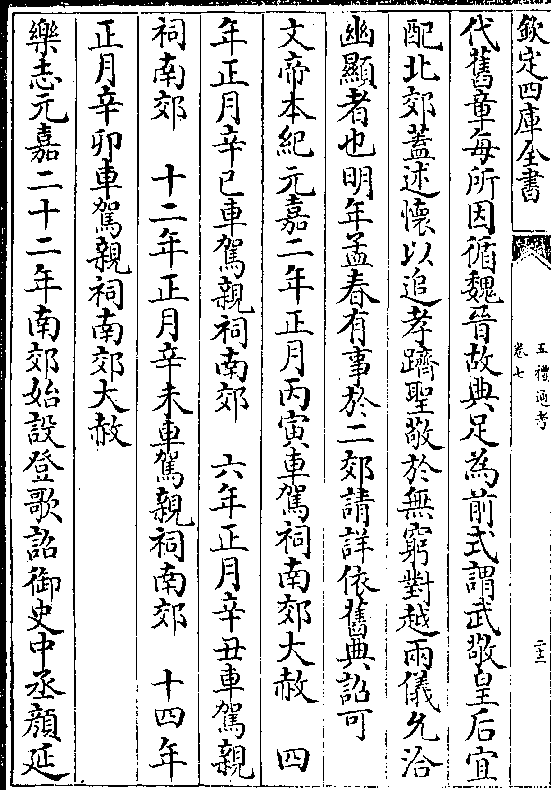 欽定四庫全書
五禮通考
卷七
二十二
代舊章每所因循魏晉故典足為前式謂武敬皇后宜
配北郊蓋述懷以追孝躋聖敬於無窮對越兩儀允洽
幽顯者也明年孟春有事於二郊請詳依舊典詔可
文帝本紀元嘉二年正月丙寅車駕祠南郊大赦　四
年正月辛已車駕親祠南郊　六年正月辛丑車駕親
祠南郊　十二年正月辛未車駕親祠南郊　十四年
正月辛卯車駕親祠南郊大赦
樂志元嘉二十二年南郊始設登歌詔御史中丞顏延